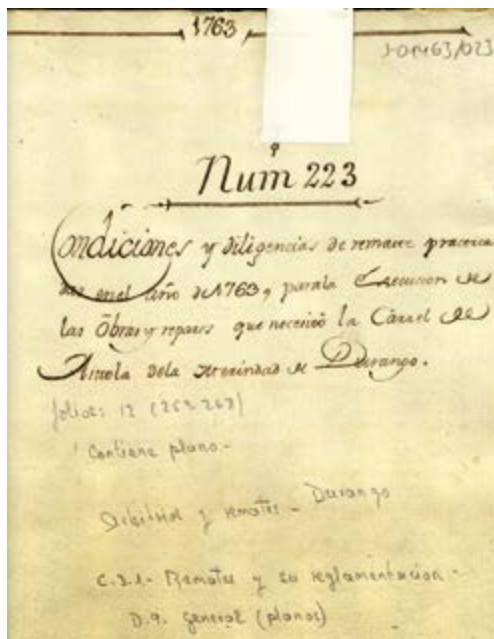 1763
J-01463/023
Num 223
Condiciones y diligencias de remate practica
das en el año de 1763, para la Execucion de
las Obras y reparos que necesitó la Carzel de
Astola dela Merindad de Durango.
folios: 12 (252-263)
Contiene plano -
y remates - Durango
C.3.1- Remates y su reglamentacion -
D.9. general (planos)